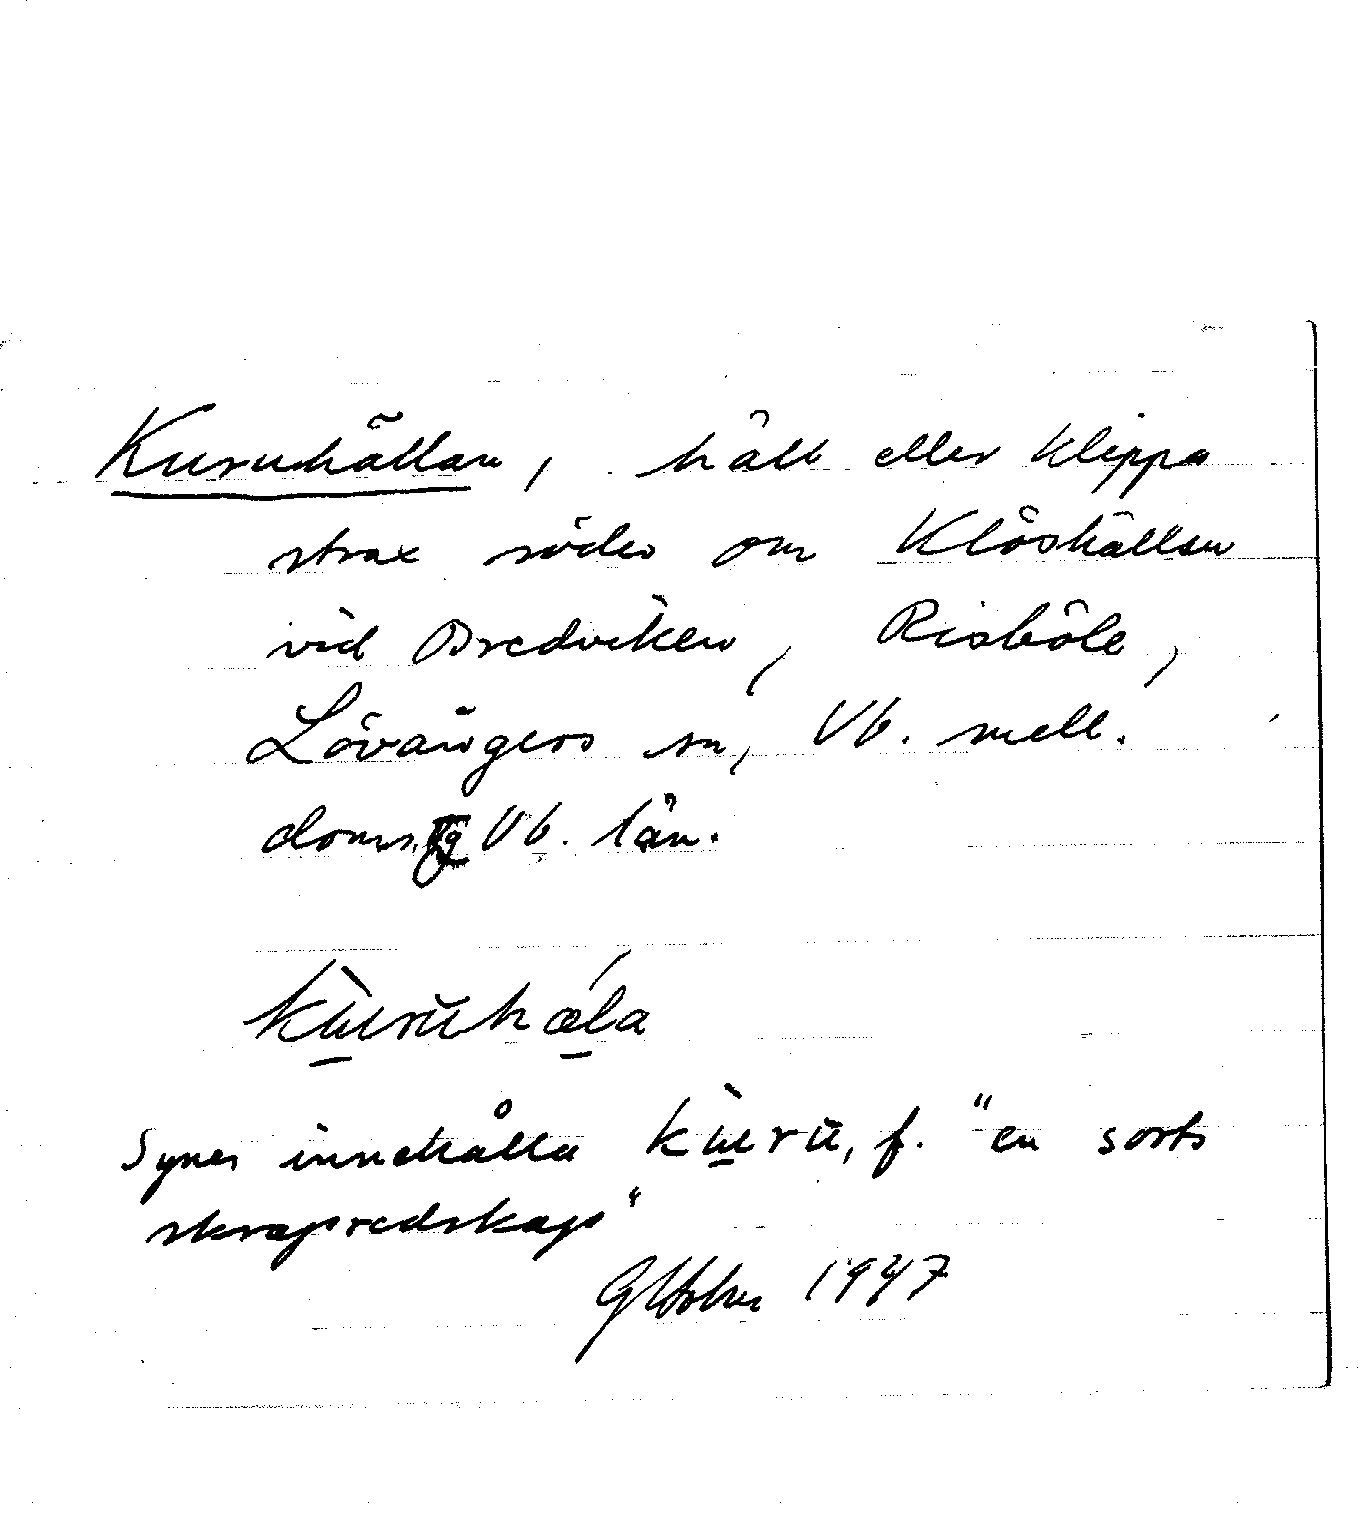 Kuruhällan, häll eller klippa
strax söder om Klöshällan
vid Bredviken, Risböle,
Lövångers sn, Vb. mell.
doms. Vb. län.
kùrŭhæ´la
Synes innehålla kùrŭ, f. "en sorts
skrapredskap"
1947